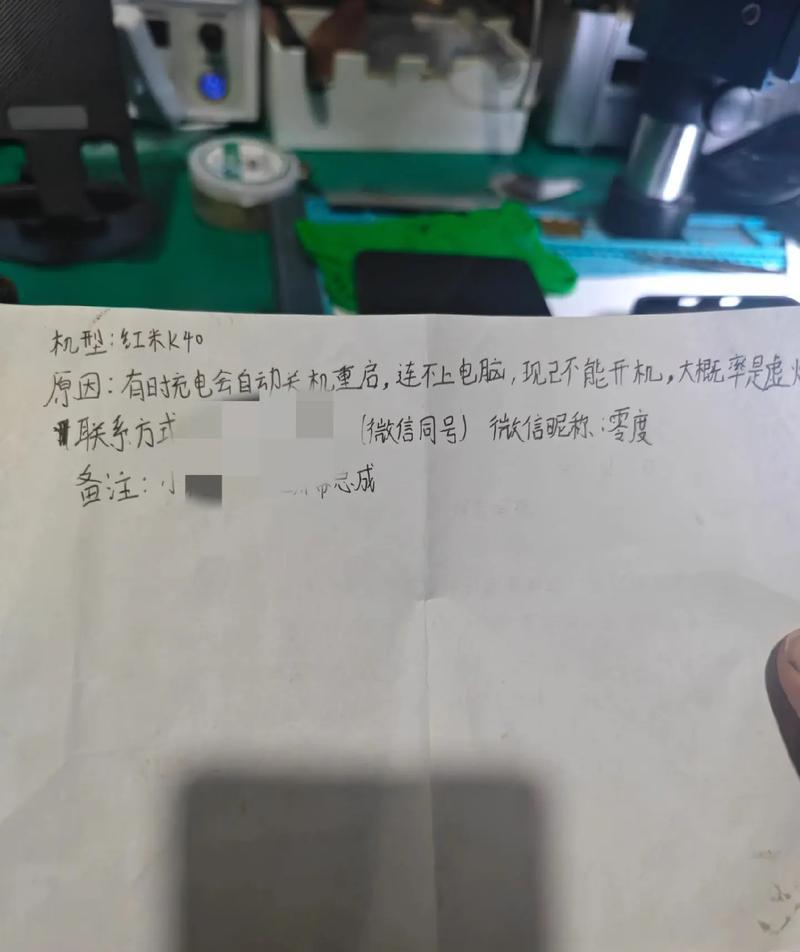 机型:红米K40
原因:有时充电会自动关机重启,连不上电脑,现已不能开机,大概率是虚
联系方式 (微信同号) 微信昵称:零度
备注:小 总成